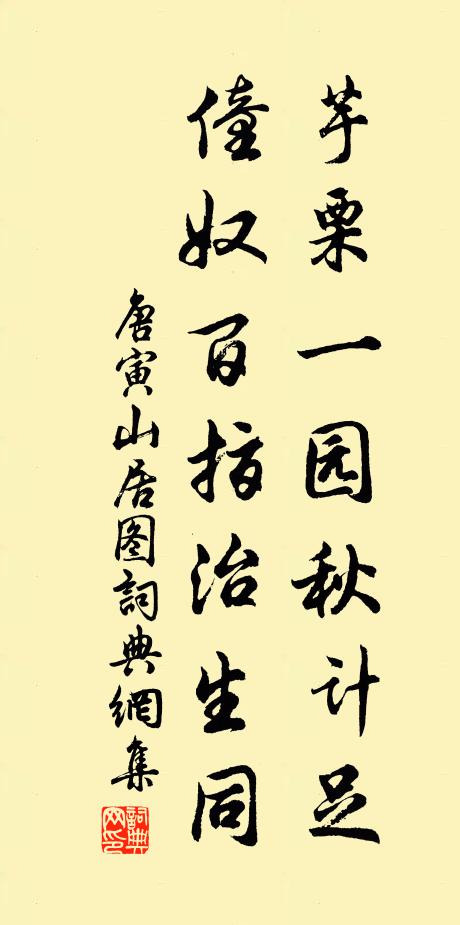 芋栗一园秋计足
僮奴百指治生同
唐寅山居图詞典網集
詞典网印